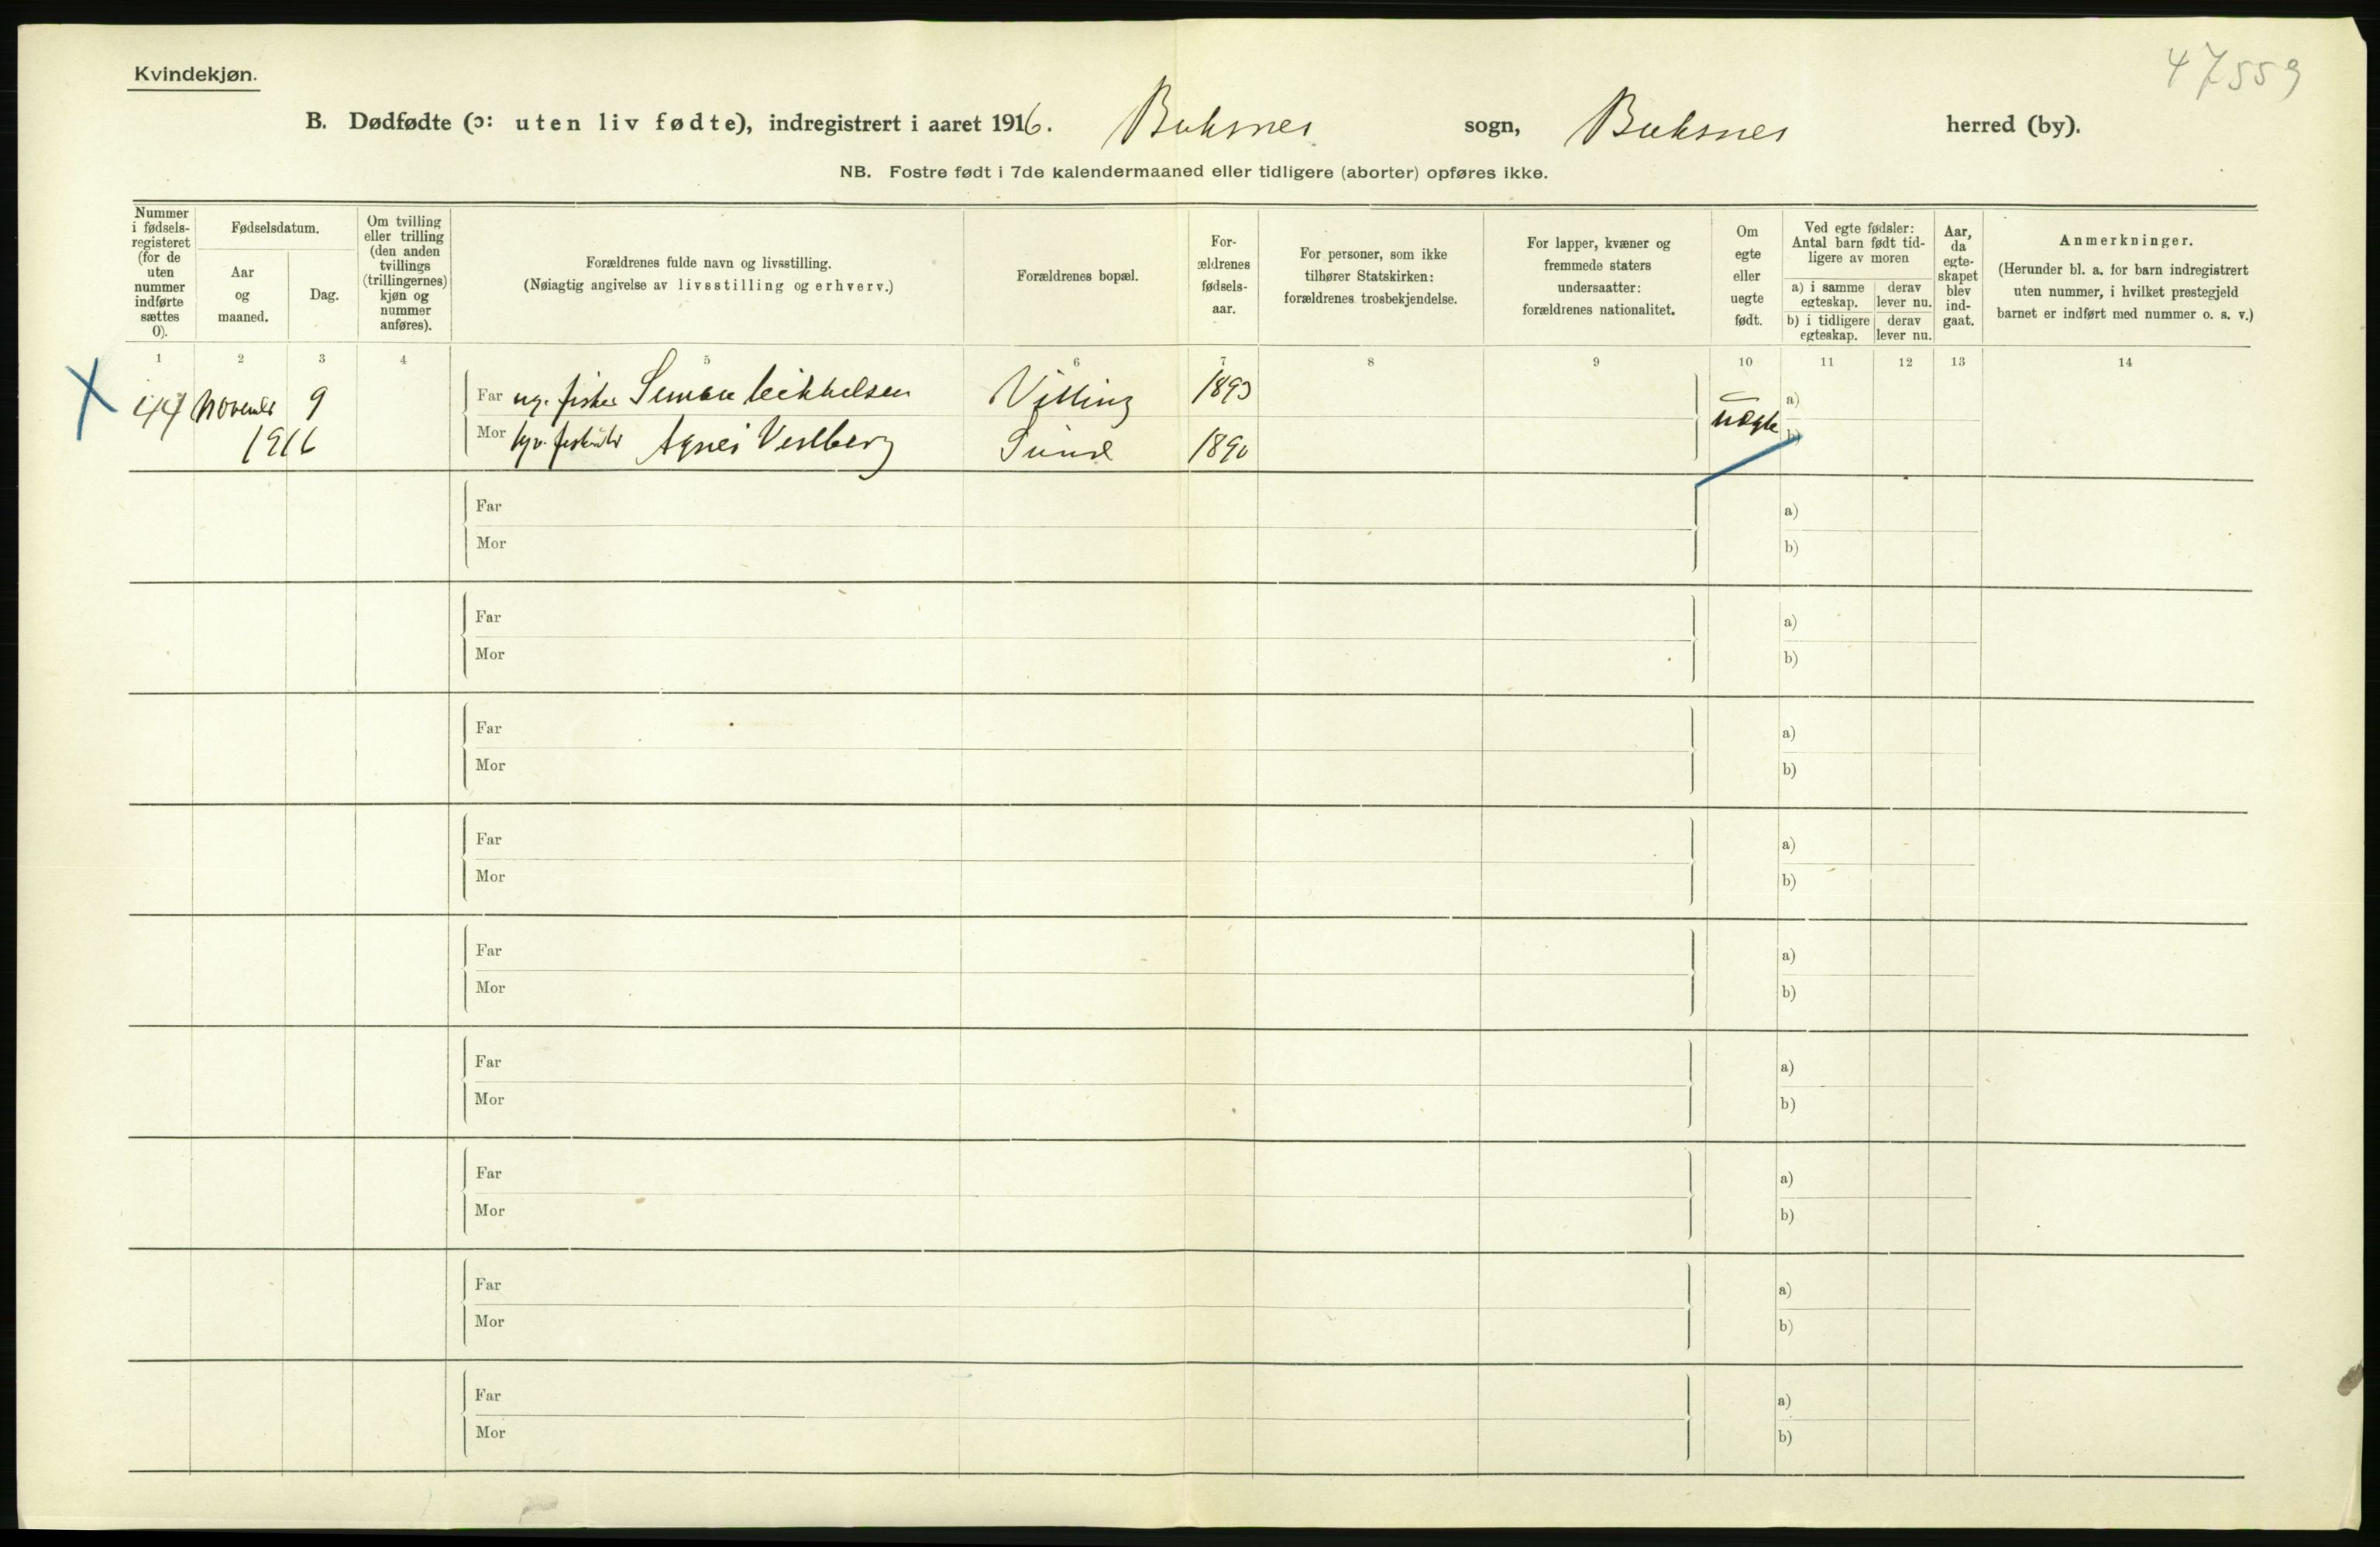 Kvindekjøn.
47559
B. Dødfødte (ɔ: uten liv fødte), indregistrert i aaret 1916. Buksnes sogn, Buksnes herred (by).
NB. Fostre født i 7de kalendermaaned eller tidligere (aborter) opføres ikke.
Nummer i fødsels- registeret (for de uten nummer indførte sættes 0).
Fødselsdatum.
Aar og maaned.
Dag.
Om tvilling eller trilling (den anden tvillings (trillingernes) kjøn og nummer anføres).
Forældrenes fulde navn og livsstilling.
(Nøiagtig angivelse av livsstilling og erhverv.)
Forældrenes bopæl.
For- ældrenes fødsels- aar.
For personer, som ikke tilhører Statskirken: forældrenes trosbekjendelse.
For lapper, kvæner og fremmede staters undersaatter: forældrenes nationalitet.
Om egte eller uegte født.
Ved egte fødsler: Antal barn født tid- ligere av moren
a) i samme egteskap.
derav lever nu.
b) i tidligere egteskap.
derav lever nu.
Aar, da egte- skapet blev ind- gaat.
Anmerkninger.
(Herunder bl. a. for barn indregistrert uten nummer, i hvilket prestegjeld barnet er indført med nummer o. s. v.)
1 2 3 4 5 6 7 8 9 10 11 12 13 14
144 November 9 Far ug. fisker 1893 a)
1916 Mor Agnes Vestberg Sund 1890 uægte b)
Far a)
Mor b)
Far a)
Mor b)
Far a)
Mor b)
Far a)
Mor b)
Far a)
Mor b)
Far a)
Mor b)
Far a)
Mor b)
Far a)
Mor b)
Far a)
Mor b)